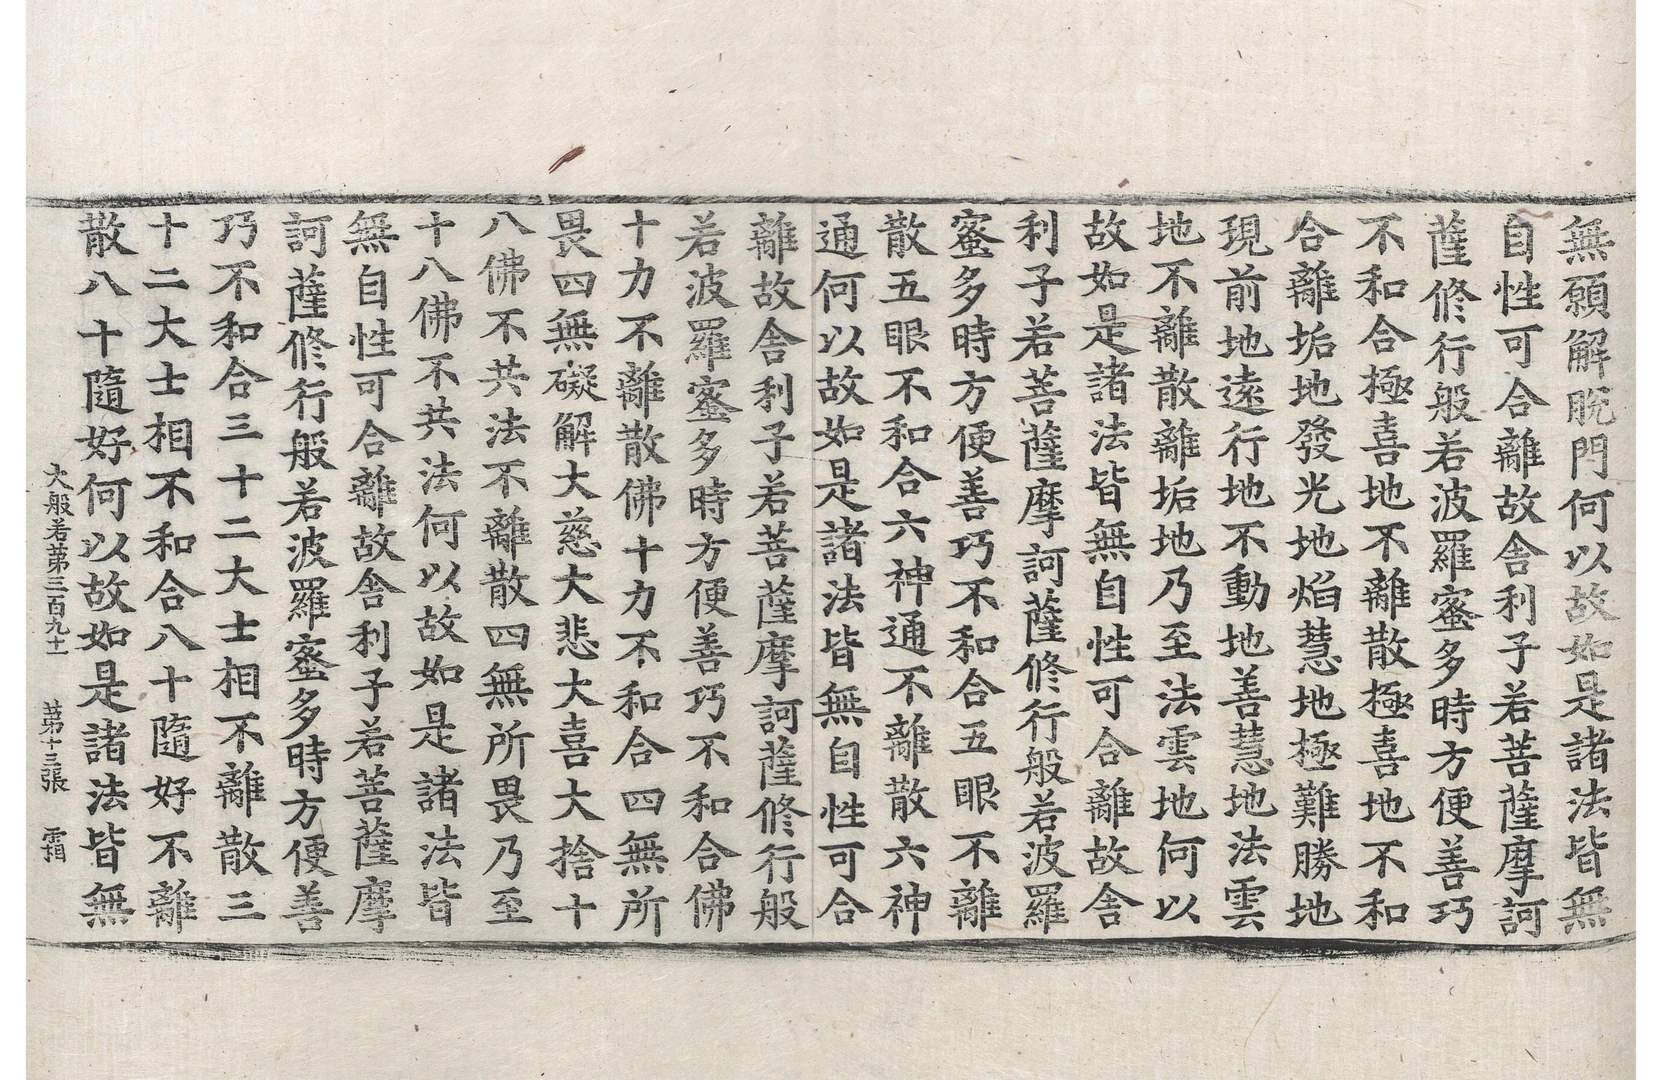 無願解脫門何以故如是諸法皆無
自性可合離故舎利子若菩薩摩訶
薩修行般若波羅蜜多時方便善巧
不和合極喜地不離散極喜地不和
合離垢地發光地焰慧地極難勝地
現前地遠行地不動地善慧地法雲
地不離散離垢地乃至法雲地何以
故如是諸法皆無自性可合離故舎
利子若菩薩摩訶薩修行般若波羅
蜜多時方便善巧不和合五眼不離
散五眼不和合六神通不離散六神
通何以故如是諸法皆無自性可合
離故舎利子若菩薩摩訶薩修行般
若波羅蜜多時方便善巧不和合佛
十力不離散佛十力不和合四無所
畏四無礙解大慈大悲大喜大捨十
八佛不共法不離散四無所畏乃至
十八佛不共法何以故如是諸法皆
無自性可合離故舎利子若菩薩摩
訶薩修行般若波羅蜜多時方便善
巧不和合三十二大士相不離散三
十二大士相不和合八十隨好不離
散八十隨好何以故如是諸法皆無
大般若第三百九十一 第十三張 霜